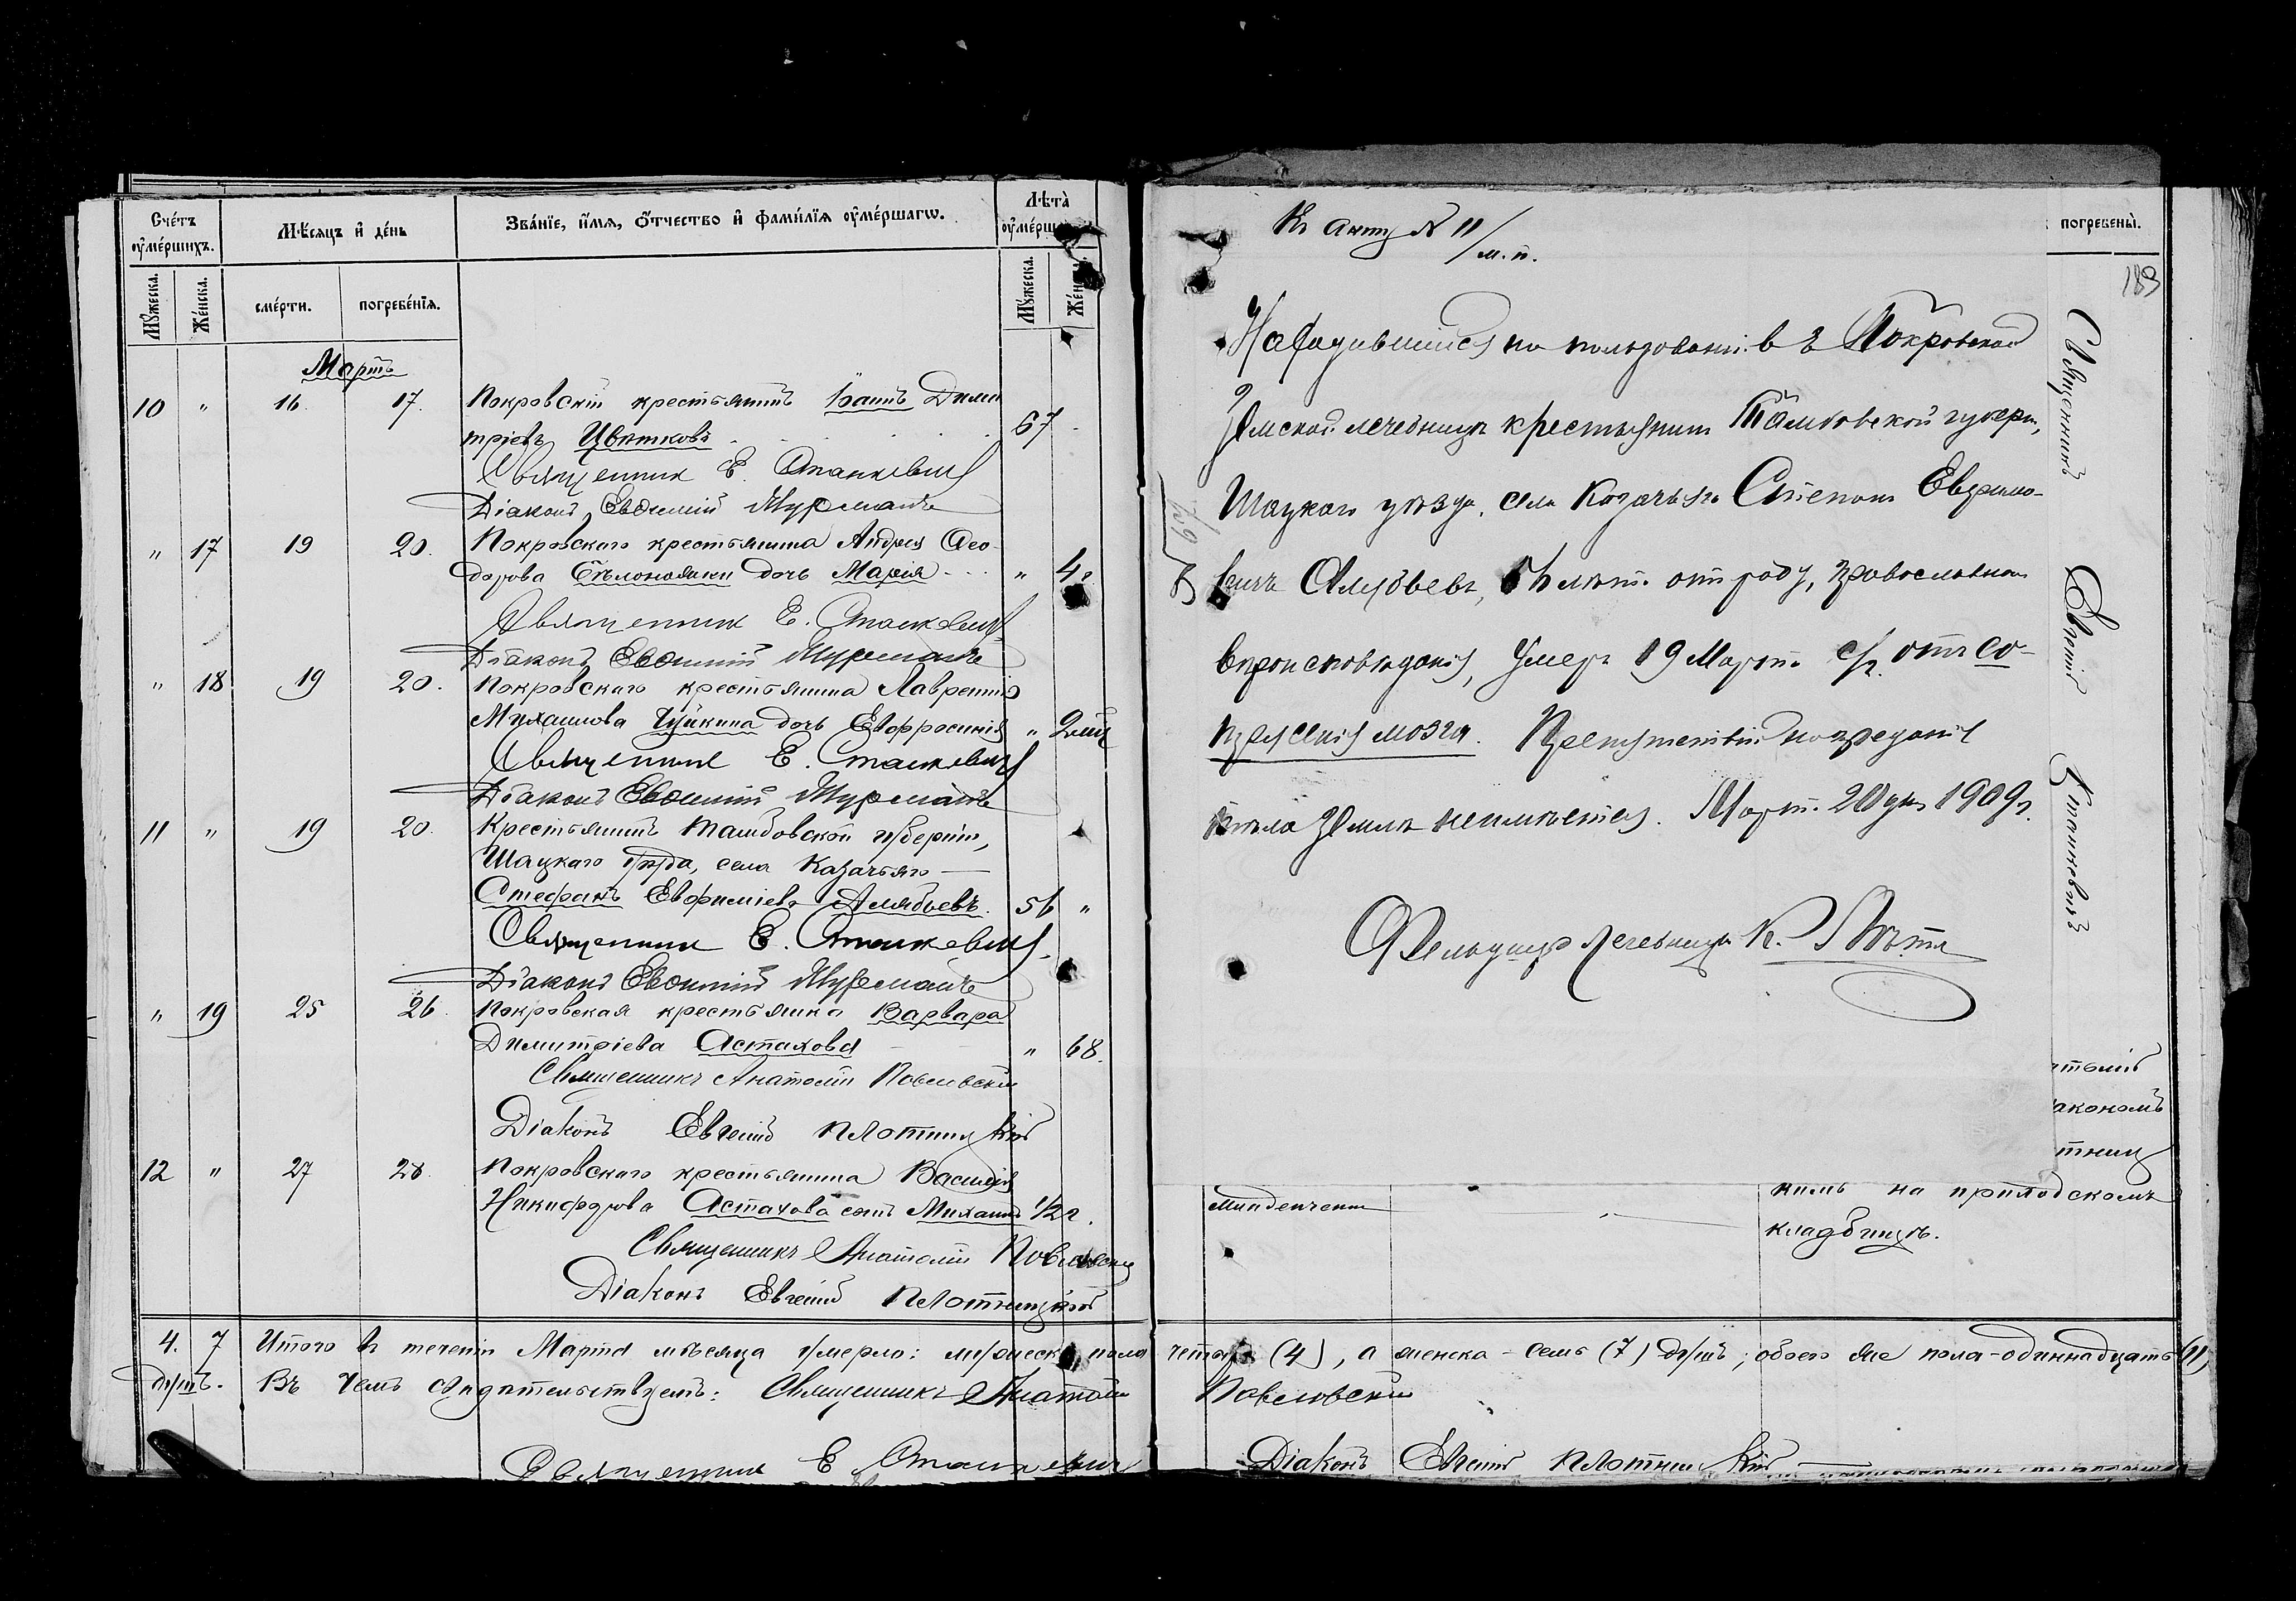 Счетъ оумершихъ.
Мѣсяцъ и день
Званіе, имя, отчество и фамилія оумершагω.
Лѣта оумерш
Мужеска.
Женска.
смерти.
погребенія.
Мужеска.
Женска.
Мартъ
10 " 16 17. Покровскій крестьянинъ Іоаннъ Дими
тріевъ Цвѣтковъ 67
Священник Е. Станкевич
Діаконъ Евѳимій
" 17 19 20. Покровскаго крестьянина Андрея Ѳео-
дорова дочь Марія " 4
Священник Е. Станкевич
Діаконъ Евѳимій
" 18 19 20. Покровскаго крестьянина Лаврентія
Михаилова дочь Евфросинія " 2
Священник Е. Станкевич
Діаконъ Евѳимій
11 " 19 20. Крестьянинъ Тамбовской губерніи,
Шацкаго уѣзда, села Казачьяго
Стефанъ Евфиміевъ Алябьевъ. 56 "
Священник Е. Станкевич.
Діаконъ Евѳимій
" 19 25 26. Покровская крестьянка Варвара
Димитріева Астахова " 68.
Священникъ Анатолій
Діаконъ Евгеній Плотницкій
12 " 27 28. Покровскаго крестьянина Василія
Никифорова Астахова сынъ Михаилъ 1/2 г.
Священникъ Анатолій
Діаконъ Евгеній Плотницкій
4. 7 Итого въ теченіи Марта мѣсяца умерло: мужеска пола четыре (4), а женска - семь (7) душъ; обоего же пола - одиннадцать (11)
душъ. Въ чемъ свидѣтельствуемъ: Священникъ Анатолій
Священник Е Станкевич Діаконъ Евгеній Плотницкій
Къ акту № 11/м.п.
Находившійся на пользованіи въ Покровской
Земской лечебницѣ крестьянинъ Тамбовской губерн,
Шацкаго уѣзда, села Казачьяго Степанъ Евфимо-
вичъ Алябьевъ, 56 лѣтъ отъ роду, православнаго
вѣроисповѣданія, умеръ 19 Марта с/г. отъ со-
трясенія мозга. Препятствій къ преданію
тѣла землѣ не имѣется. Март. 20 дня 1909 г.
Фельдшеръ лечебницы К.
погребены.
183
Священникъ Евѳимій Станкевичъ
акономъ
младенческ
кимъ на приходскомъ
кладбищѣ.